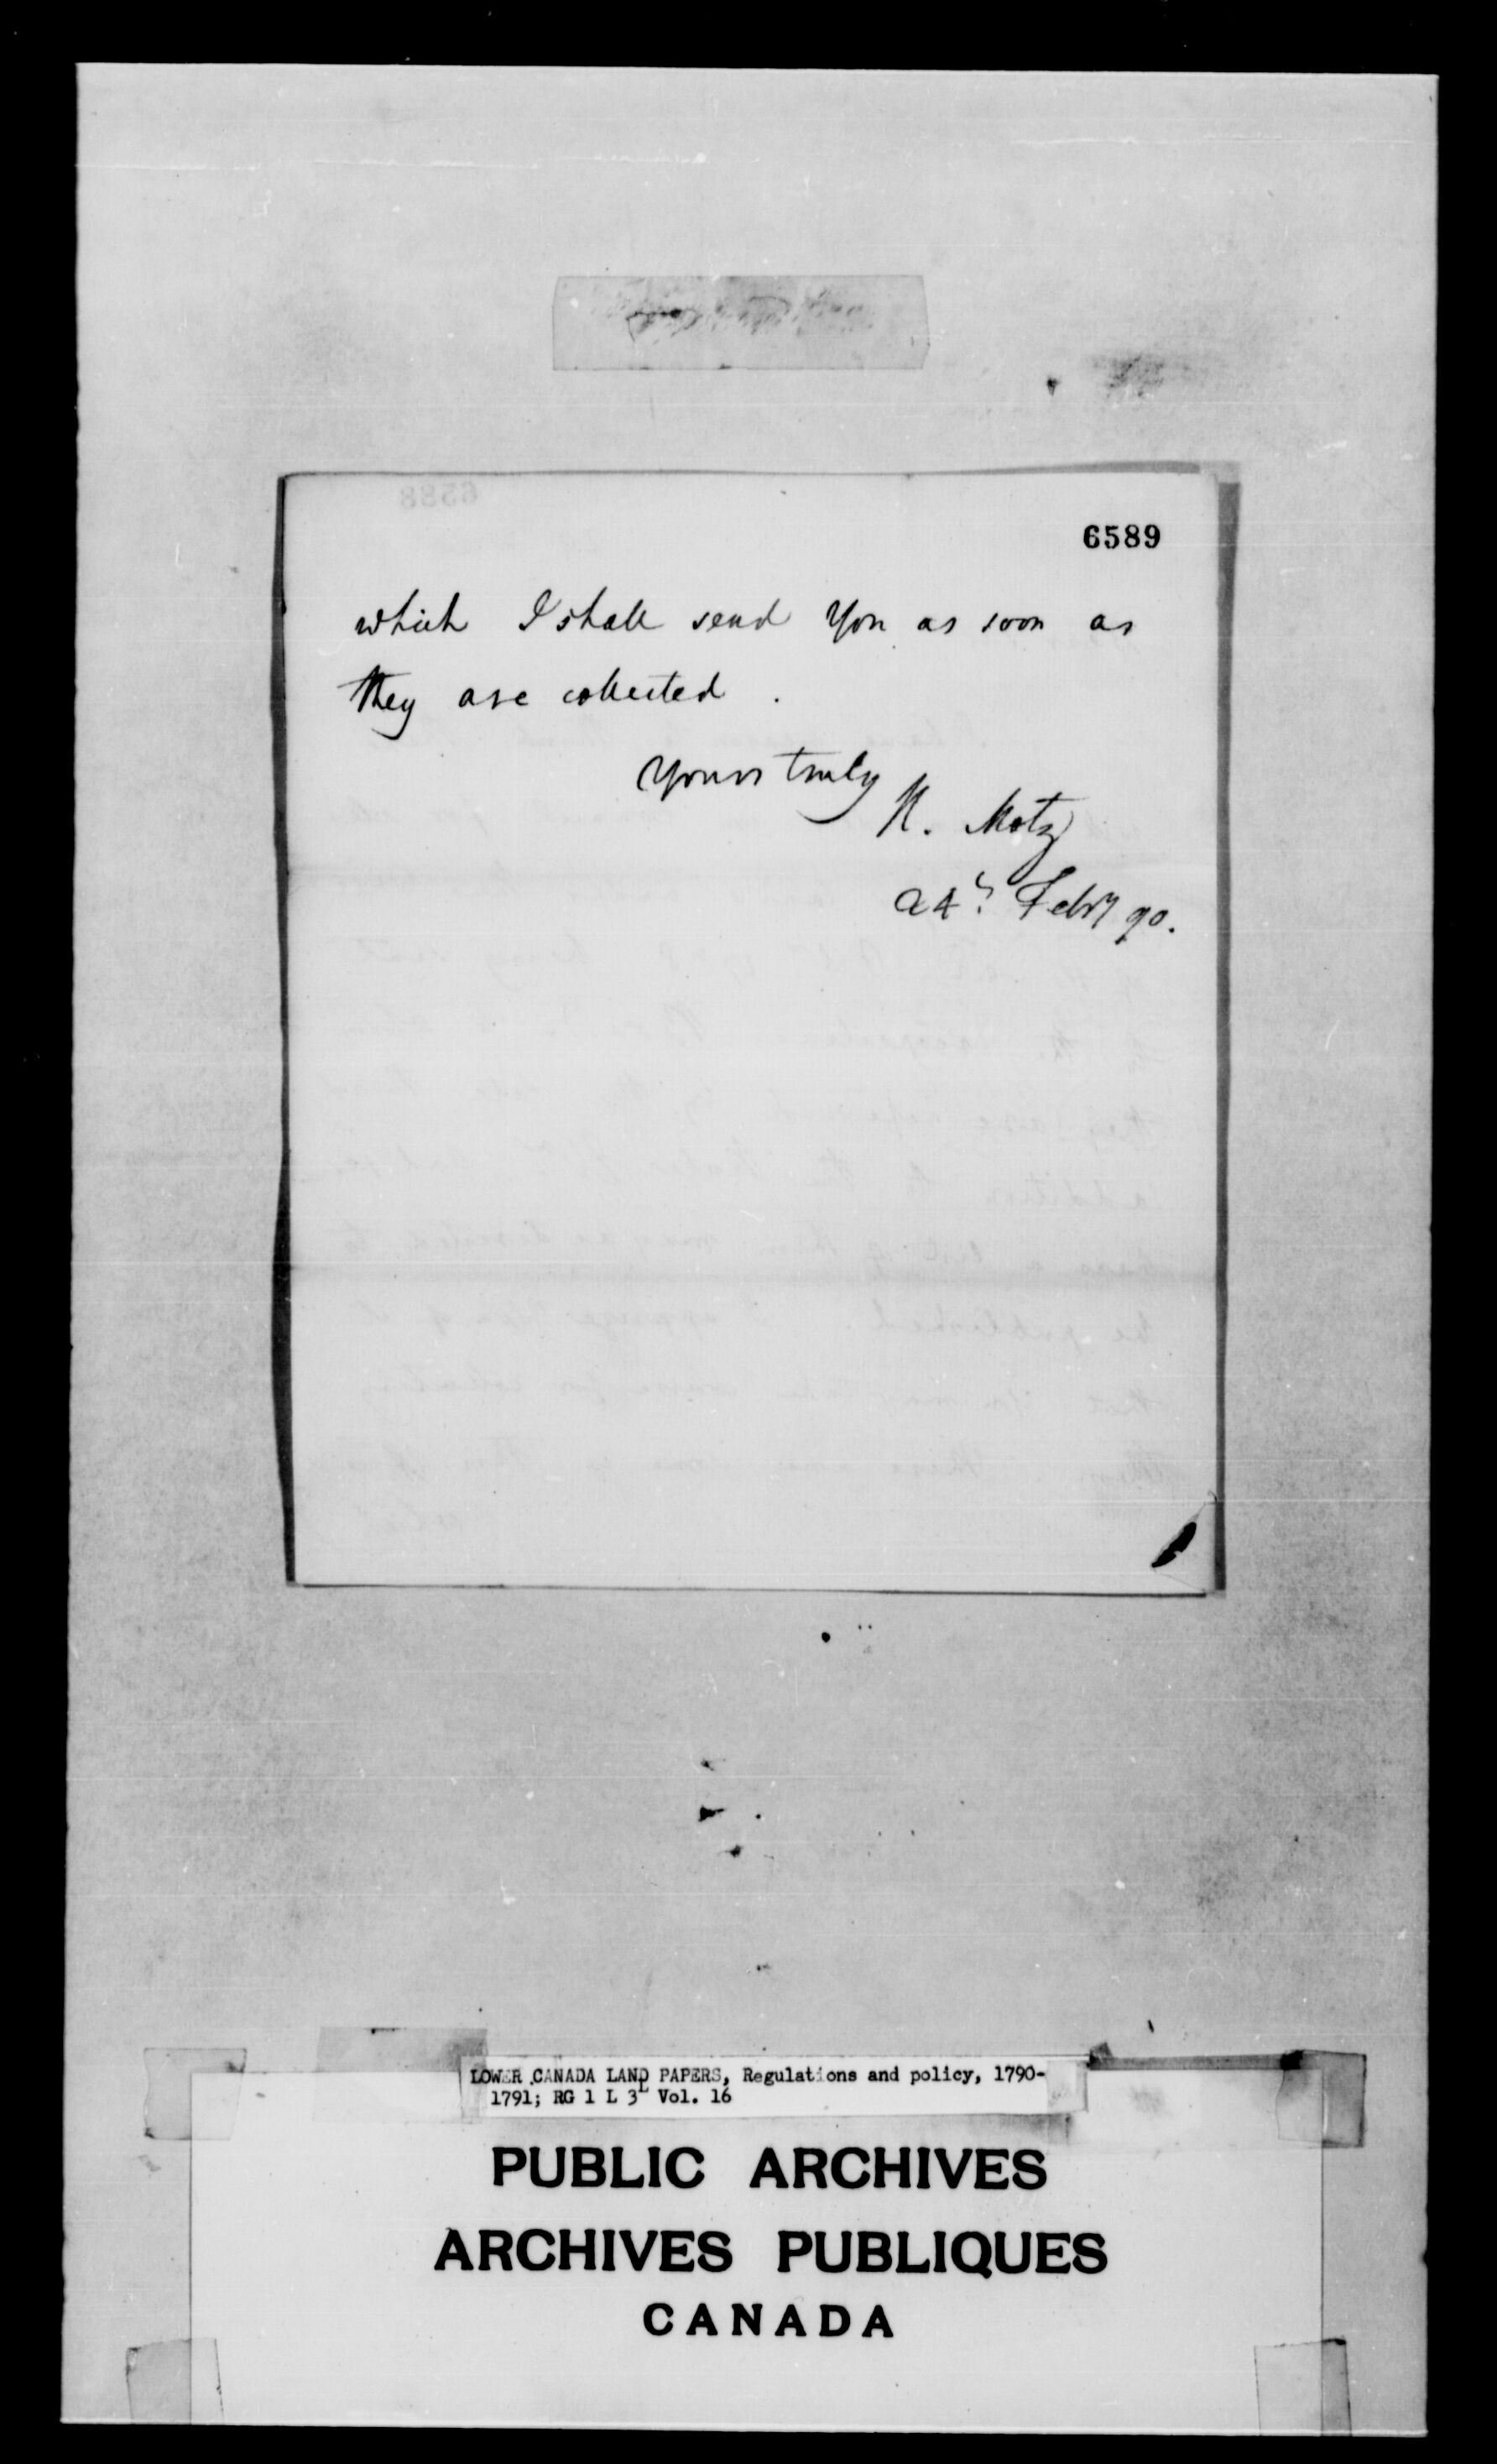 6589
which I shall send You as soon as
they are collected .
Yours truly
H. Motz
24th Febry 90.
LOWER CANADA LAND PAPERS, Regulations and policy, 1790-
1791; RG 1 L 3L Vol. 16
PUBLIC ARCHIVES
ARCHIVES PUBLIQUES
CANADA